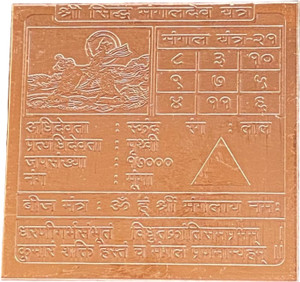 श्री सिद्ध मंगलदेव यंत्र
मंगल यंत्र-२१
८ ३ १०
९ ७ ५
४ ११ ६
अधिदेवता : स्कंद रंग : लाल
प्रत्यधिदेवता : पृथ्वी
जपसंख्या : १००००
मूंगा
बीज मंत्र : ॐ हूँ श्रीं मंगलाय नमः
धरणीगर्भसंभूतं विद्युतकांतिसमप्रभम्
कुमारं शक्ति हस्तं च मंगलं प्रणमाम्यहम् ।।